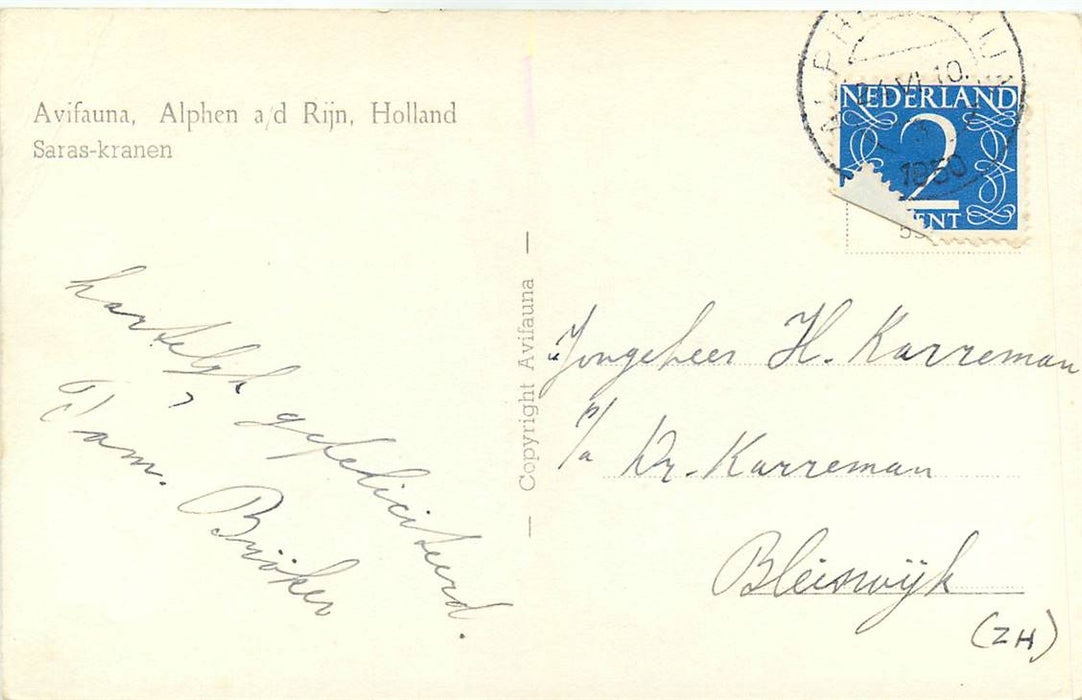 Avifauna, Alphen a/d Rijn, Holland
Saras-kranen
hartelijk gefeliciteerd.
Fam. Bröker
— Copyright Avifauna —
NEDERLAND
2
ENT
VI 10
1950
Jongeheer H. Karreman
p/a Dr. Karreman
Bleiswijk
(ZH)